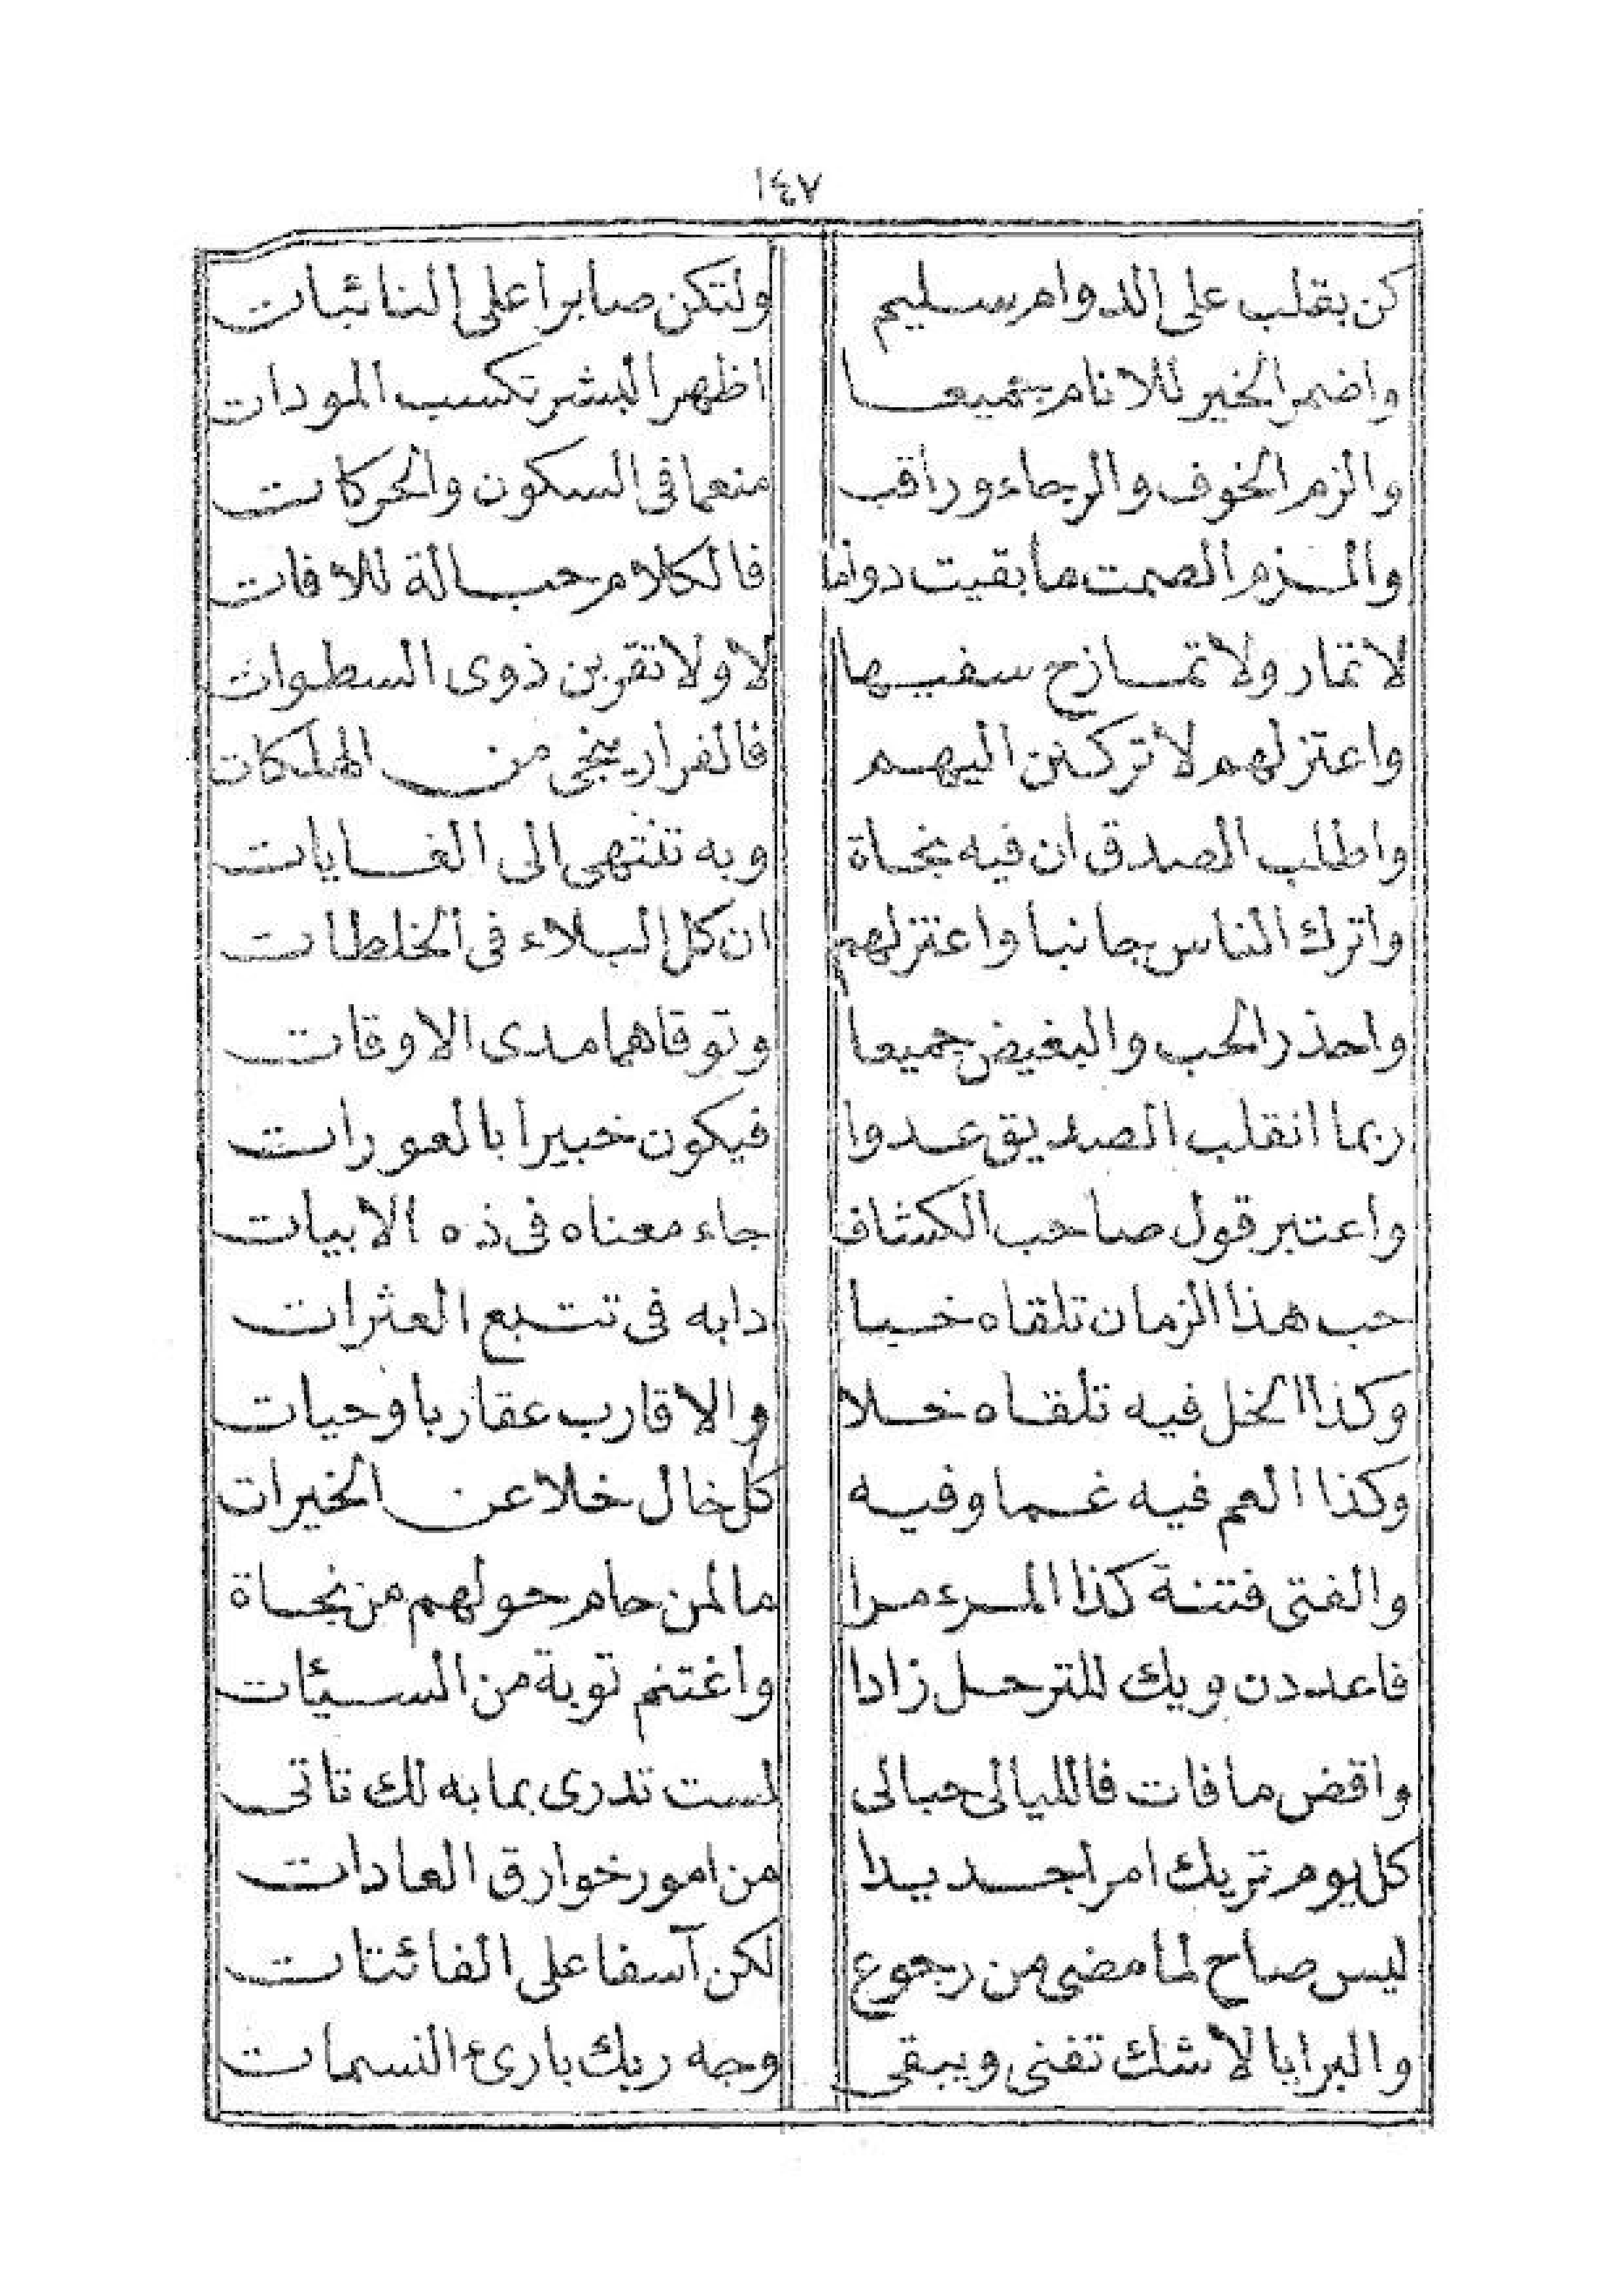 ١٤٧
كن بقلب على الدوام سليم ولتكن صابرا على النائبات
واضمر الخير للانام جميعا اظهر البشر تكسب المودات
والزم الخوف والرجاء وراقب منعما فى السكون والحركات
والزم الصمت ما بقيت دواما فالكلام حبالة للافات
لا تمار ولا تمازح سفيها لا ولا تقربن ذوى السطوات
واعتزلهم لا تركنن اليهم فالفرار ينجى من المهلكات
واطلب الصدق ان فيه نجاة وبه تنتهى الى الغايات
واترك الناس جانبا واعتزلهم ان كل البلاء فى الخلطات
واحذر الحب والبغيض جميعا وتوقاهما مدى الاوقات
ربما انقلب الصديق عدوا فيكون خبيرا بالعورات
واعتبر قول صاحب الكشاف جاء معناه فى ذه الابيات
حب هذا الزمان تلقاه خبا دابه فى تتبع العثرات
وكذا الخل فيه تلقاه خلا والاقارب عقاربا وحيات
وكذا العم فيه غما وفيه كل خال خلا عن الخيرات
والفتى فتنة كذا المرء مرا ما لمن حام حولهم من نجاة
فاعددن ويك للترحل زادا واغتنم توبة من السيئات
واقض ما فات فالليالى حبالى لست تدرى بما به لك تاتى
كل يوم تريك امرا جديدا من امور خوارق العادات
ليس صاح لما مضى من رجوع لكن آسفا على الفائتات
والبرايا لا شك تفنى ويبقى وجه ربك بارئ النسمات